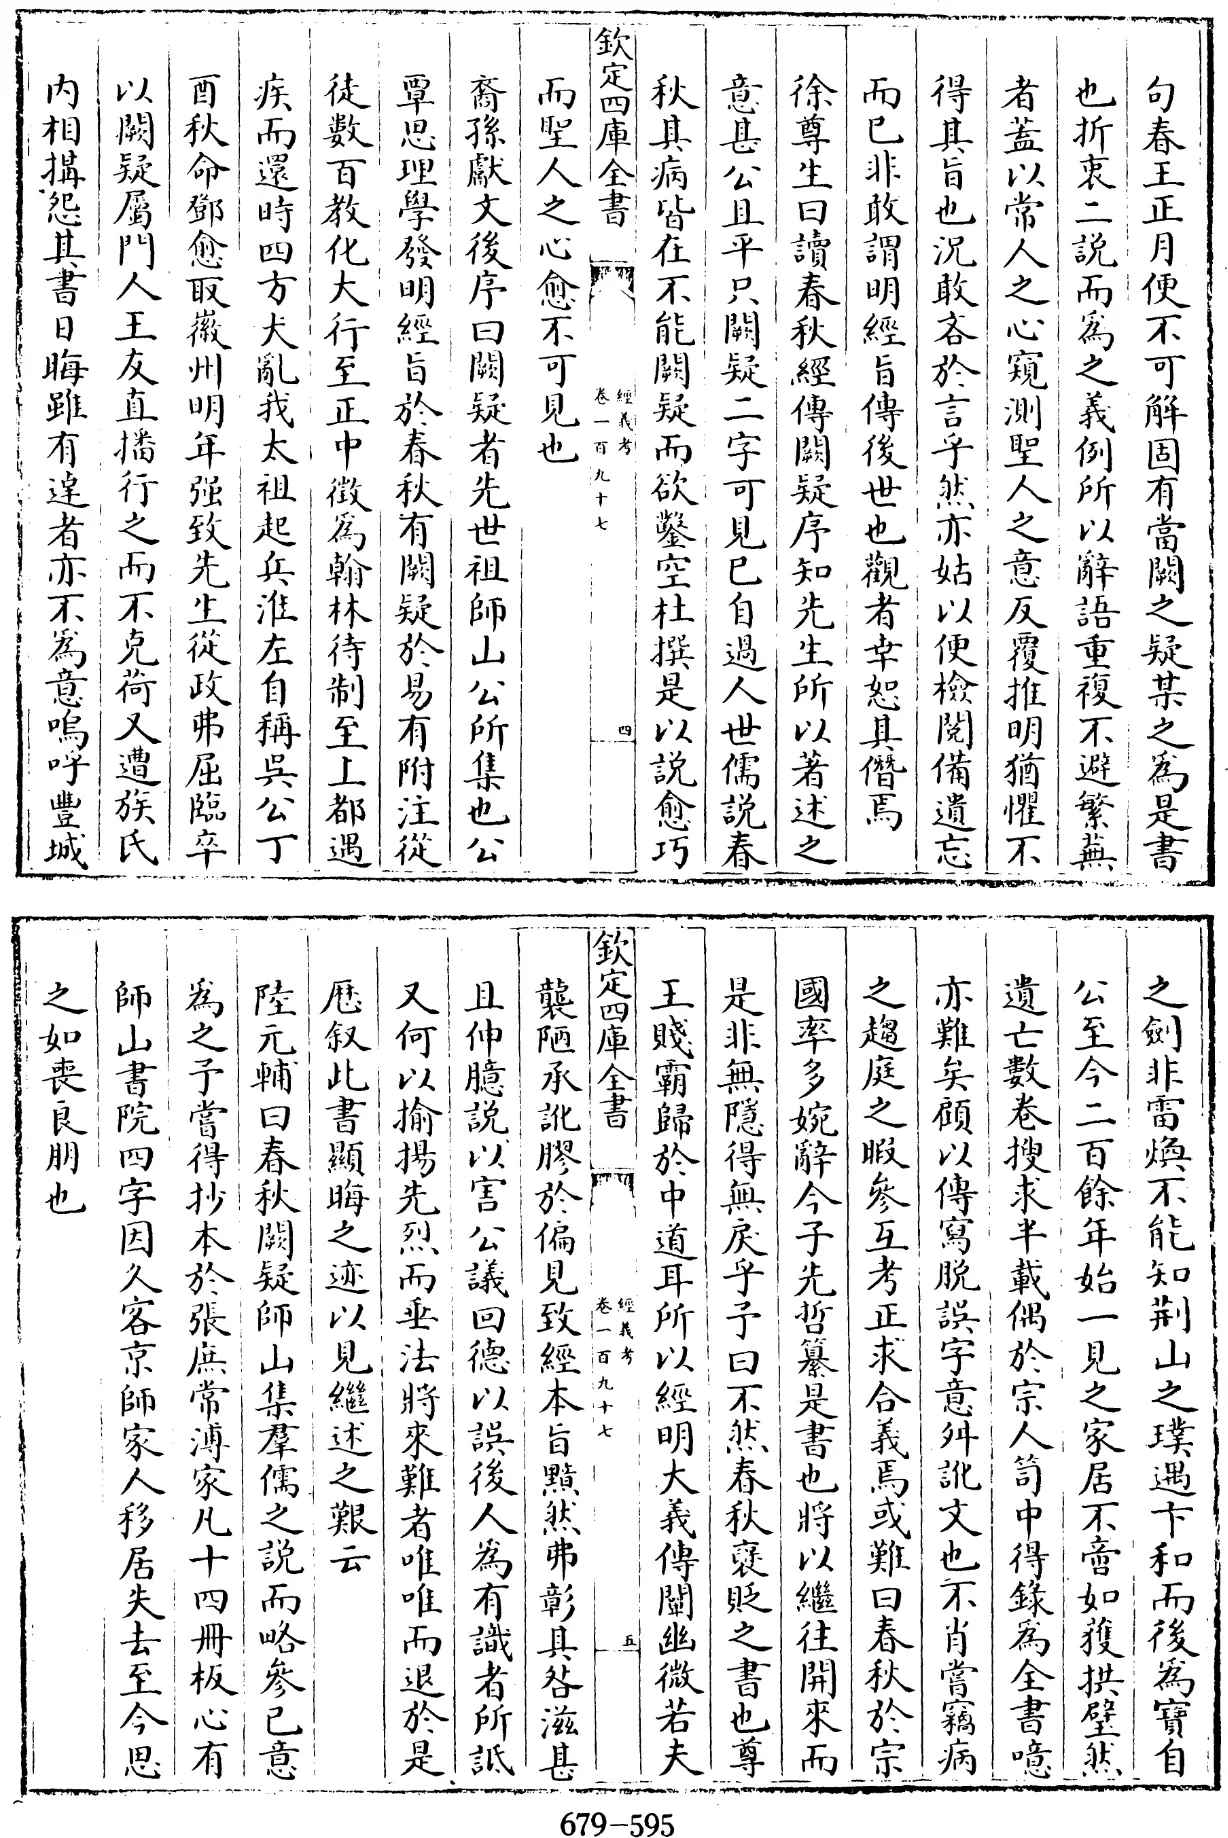 句春王正月便不可解固有當闕之疑某之為是書
也折衷二說而為之義例所以辭語重複不避繁蕪
者蓋以常人之心窺測聖人之意反覆推明猶懼不
得其旨也況敢吝於言乎然亦姑以便檢閱備遺忘
而已非敢謂明經旨傳後世也觀者幸恕其僭焉
徐尊生曰讀春秋經傳闕疑序知先生所以著述之
意甚公且平只闕疑二字可見已自過人世儒說春
秋其病皆在不能闕疑而欲鑿空杜撰是以說愈巧
欽定四庫全書
經義考
卷一百九十七
四
而聖人之心愈不可見也
裔孫獻文後序曰闕疑者先世祖師山公所集也公
覃思理學發明經旨於春秋有闕疑於易有附注從
徒數百教化大行至正中徵為翰林待制至上都遇
疾而還時四方大亂我太祖起兵淮左自稱吳公丁
酉秋命鄧愈取徽州明年强致先生從政弗屈臨卒
以闕疑屬門人王友直播行之而不克荷又遭族氏
内相搆怨其書日晦雖有達者亦不為意嗚呼豐城
之劍非雷煥不能知荆山之璞遇卞和而後為寶自
公至今二百餘年始一見之家居不啻如獲拱璧然
遺亡數卷搜求半載偶於宗人笥中得錄為全書噫
亦難矣顧以傳寫脫誤字意舛訛文也不肖嘗竊病
之趨庭之暇參互考正求合義焉或難曰春秋於宗
國率多婉辭今子先哲纂是書也將以繼往開來而
是非無隱得無戾乎予曰不然春秋褒貶之書也尊
王賤霸歸於中道耳所以經明大義傳闡幽微若夫
欽定四庫全書
經義考
卷一百九十七
五
襲陋承訛膠於偏見致經本旨黯然弗彰其咎滋甚
且伸臆說以害公議回德以誤後人為有識者所詆
又何以揄揚先烈而垂法將來難者唯唯而退於是
歷叙此書顯晦之迹以見繼述之艱云
陸元輔曰春秋闕疑師山集羣儒之說而略參己意
為之予嘗得抄本於張庶常溥家凡十四冊板心有
師山書院四字因久客京師家人移居失去至今思
之如喪良朋也
679-595